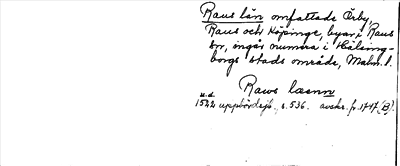 Raus län omfattade Örby,
Raus och Köpinge, byar i Raus
sn, ingår numera i Hälsing-
borgs stads område, Malm. l.
Raws laenn
u.d.
1522 uppbördsjb. s. 536. avskr. fr. 1747 (B).